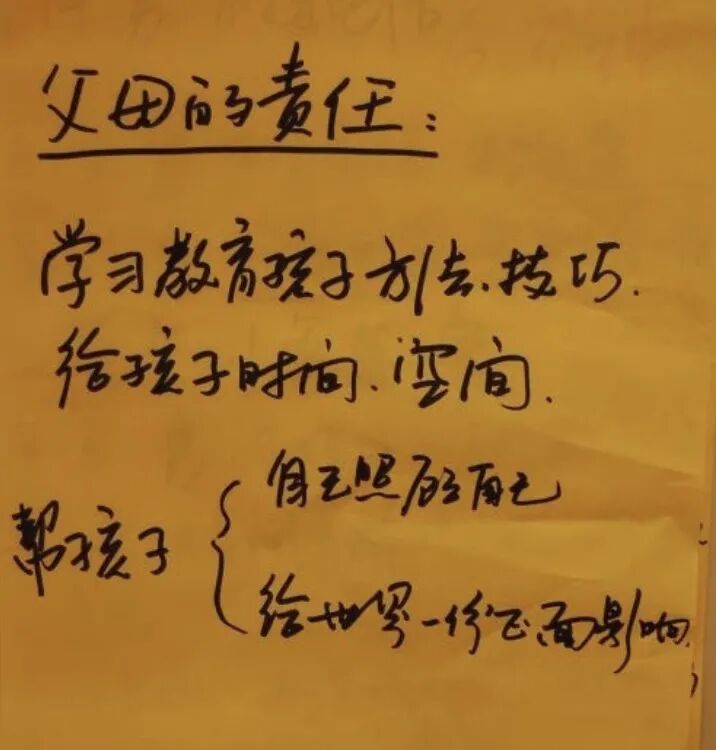 父母的责任:
学习教育孩子方法、技巧.
给孩子时间、空间.
帮孩子 {
自己照顾自己
给世界一份正面影响.